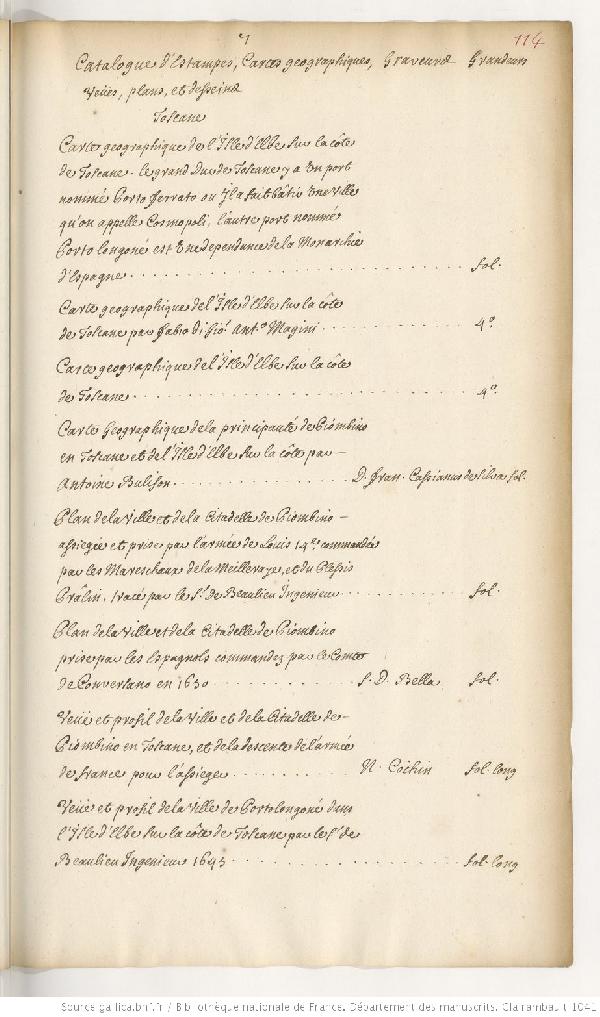 7
114
Catalogue d'Estampes, Cartes geographiques, Graveurs Grandeurs
Veües, plans, et desseins
Toscane
Carte geographique de l'Isle d'Elbe sur la côte
de Toscane. le grand Duc de Toscane y a un port
nommé Porto ferrato ou Il a fait bâtir une ville
qu'on appelle Cosmopoli. l'autre port nommé
Porto longoné est une dependance de la Monarchie
d'Espagne . . . . . . . . . . . . . . . . fol.
Carte geographique de l'Isle d'Elbe sur la côte
de Toscane par fabio di Gio. Ant.o Magini . . . . . . . . 4.o
Carte geographique de l'Isle d'Elbe sur la côte
de Toscane . . . . . . . . . . . . . . . . 4.o
Carte Geographique de la principauté de Piombino
en Toscane et de l'Isle d'Elbe sur la côte par –
Antoine Bulifon . . . . . . . . . . D. fran. Cassianus de Silva fol.
Plan de la Ville et de la Citadelle de Piombino –
assiegée et prise par l'armée de Louis 14.e commandée
par les Mareschaux de la Meilleraye, et du Plessis
Prâlin. tracé par le S.r de Beaulieu Ingenieur . . . . . . . . fol.
Plan de la Ville et de la Citadelle de Piombino
prise par les Espagnols commandez par le Comte
de Conversano en 1650 . . . . . . . . S. D. Bella fol.
Veüe et profil de la Ville et de la Citadelle de –
Piombino en Toscane, et de la descente de l'armée
de france pour l'assieger . . . . . . . . N. Cochin fol. long
Veüe et profil de la Ville de Portolongoné dans
l'Isle d'Elbe sur la côte de Toscane par le S.r de
Beaulieu Ingenieur 1645 . . . . . . . . . . . . fol. long
Source gallica.bnf.fr / Bibliothèque nationale de France. Département des manuscrits. Clairambault 1041